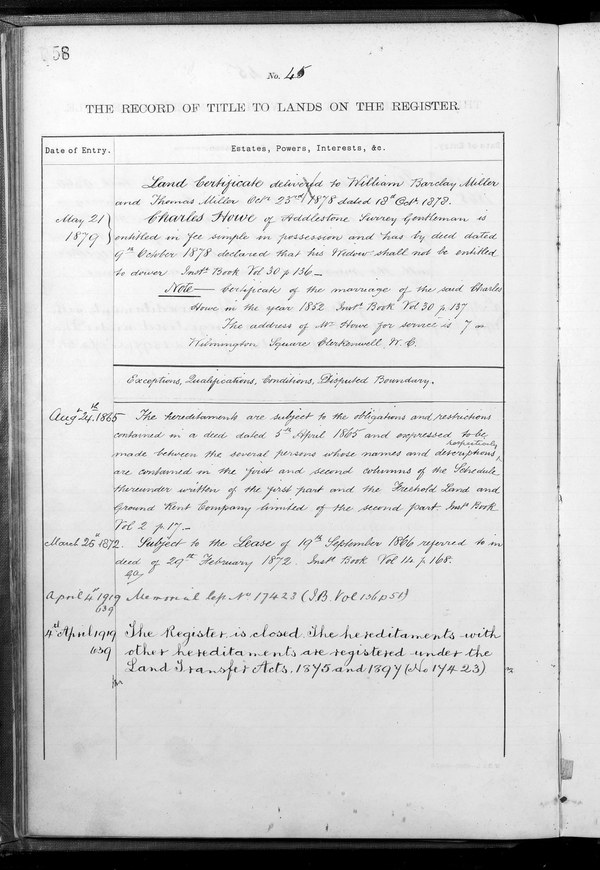 58
No. 45
THE RECORD OF TITLE TO LANDS ON THE REGISTER.
Date of Entry.
Estates, Powers, Interests, &c.
Land Certificate delivered to William Barclay Miller
and Thomas Miller Octr 23rd 1878 dated 18th Octr 1878.
May 21
1879
Charles Howe of Addlestone Surrey Gentleman is
entitled in fee simple in possession and has by deed dated
9th October 1878 declared that his Widow shall not be entitled
to dower Instt Book Vol 30 p 136 —
Note — Certificate of the marriage of the said Charles
Howe in the year 1852 Instt Book Vol 30 p 137
The address of Mr Howe for service is 7
Wilmington Square Clerkenwell W. C.
Exceptions, Qualifications, Conditions, Disputed Boundary.
Augt 24th 1865
The hereditaments are subject to the obligations and restrictions
contained in a deed dated 5th April 1865 and expressed to be
made between the several persons whose names and descriptions respectively
are contained in the first and second columns of the Schedule
thereunder written of the first part and the Freehold Land and
Ground Rent Company limited of the second part Instt Book
Vol 2 p. 17. —
March 25th 1872.
Subject to the Lease of 19th September 1866 referred to in
deed of 29th February 1872. Instt Book Vol 114 p. 168.
April 4th 1919
639
Memorial No 17423 (I.B. Vol 136 p 51)
4th April 1919
639
The Register is closed. The hereditaments with
other hereditaments are registered under the
Land Transfer Acts, 1875 and 1897 (No 17423)